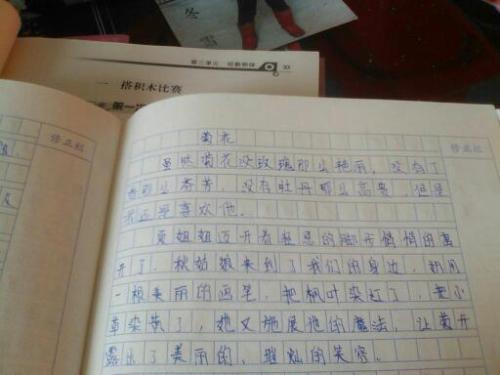 冬
雪
第三单元
33
一 搭积木比赛
修正栏
修正栏
菊花
虽然菊花没玫瑰那么艳丽，没有
那么芬芳，没有牡丹那么高贵，但是
我还是喜欢他。
夏姐姐迈开着轻思的脚步悄悄的离
开了，秋姑娘来到了我们的身边，她用
一根美丽的画笔，把枫叶染红了，把小
草染黄了，她又施展他的魔法，让菊开
露出了美丽的、灿的笑容。